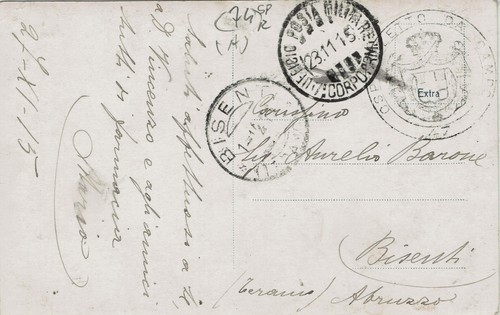 74 GP
R
(A)
UFFICIO POSTA MILITARE
23 11 15
CORPO
BISENTI
Extra
Saluti affettuosi a te,
a D. Vincenzo e agli amici
tutti di farmacia
Mario
27-XI-15
Carissimo
Sig. Aurelio Barone
Bisenti
(Teramo) Abruzzo